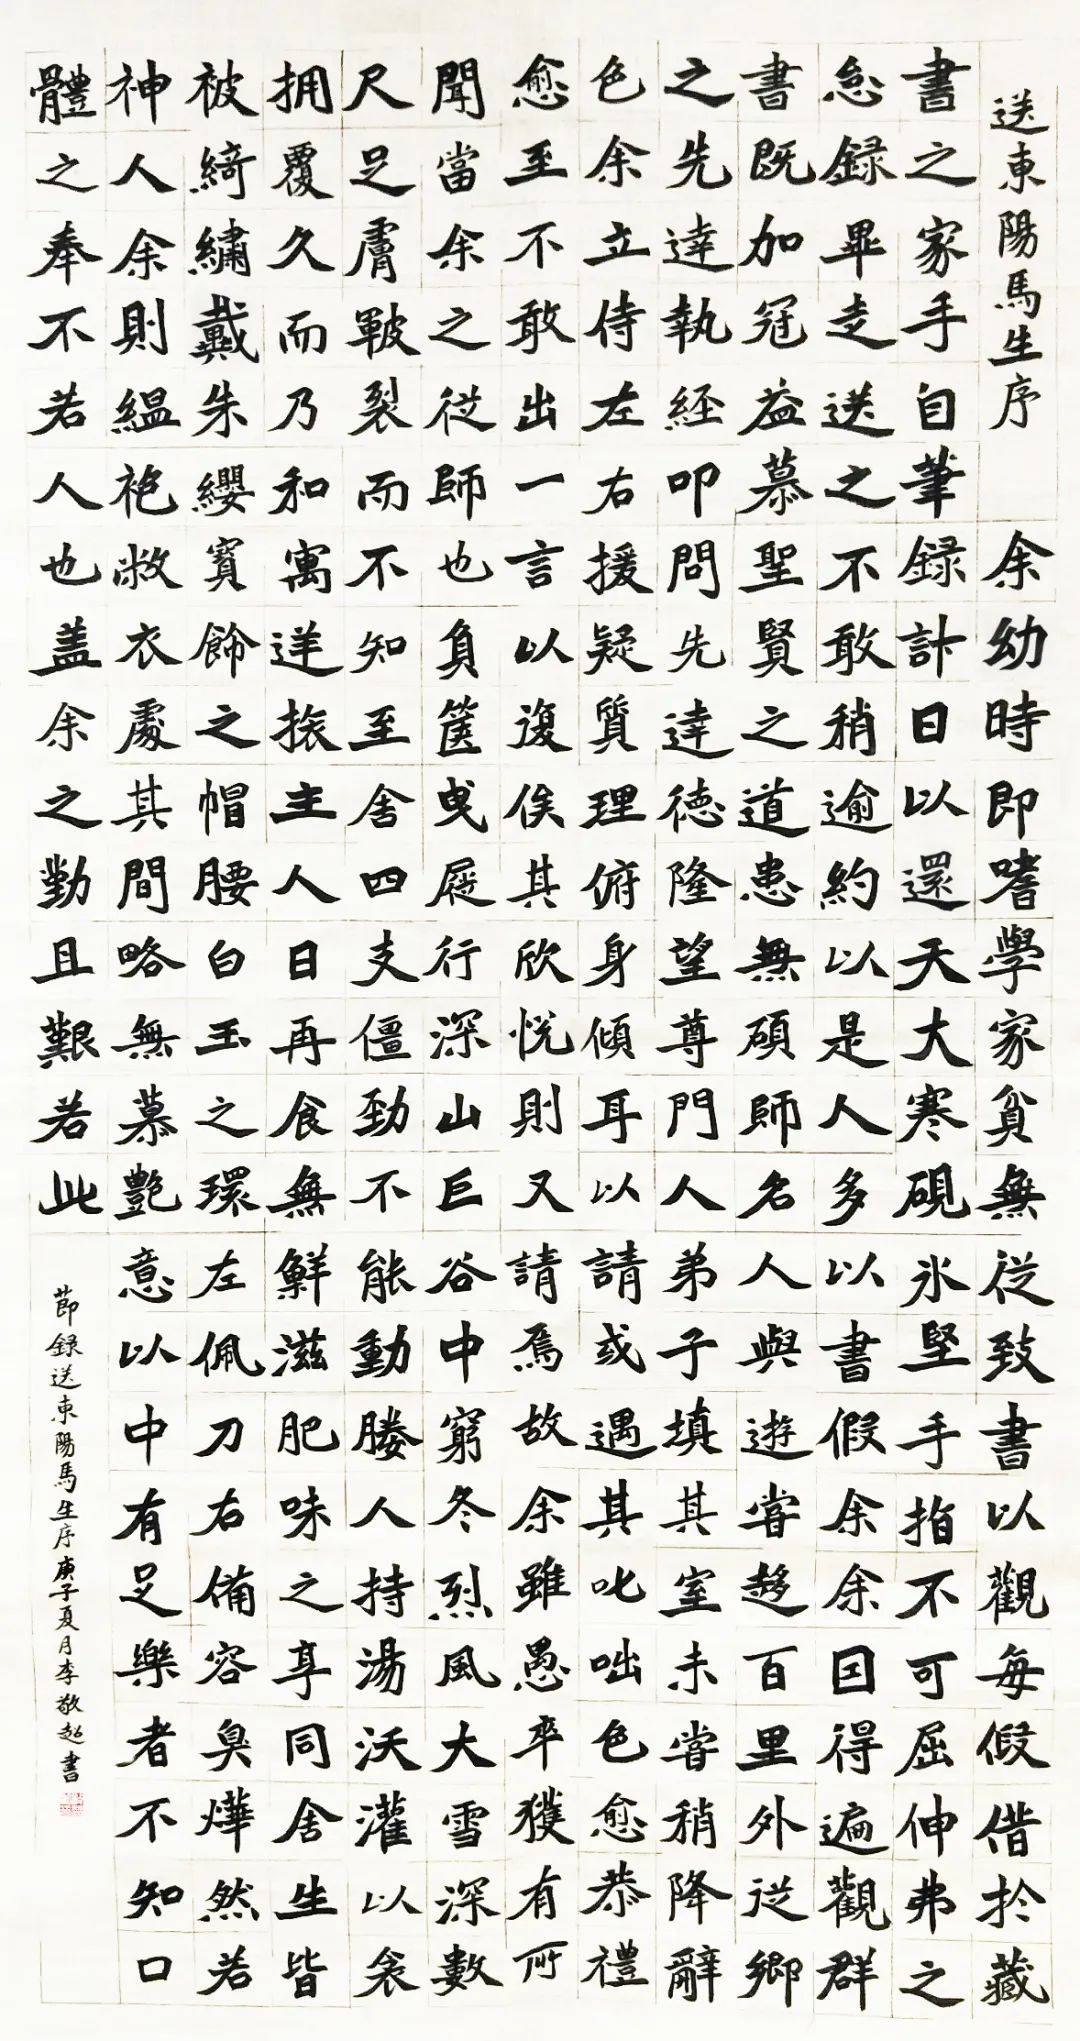 送東陽馬生序 余幼時即嗜學家貧無從致書以觀每假借於藏
書之家手自筆録計日以還天大寒硯氷堅手指不可屈伸弗之
怠録畢走送之不敢稍逾約以是人多以書假余余因得遍觀群
書既加冠益慕聖賢之道患無碩師名人與遊嘗趍百里外從鄉
之先達執經叩問先達德隆望尊門人弟子填其室未嘗稍降辭
色余立侍左右援疑質理俯身傾耳以請或遇其叱咄色愈恭禮
愈至不敢出一言以復俟其欣悦則又請焉故余雖愚卒獲有所
聞當余之從師也負篋曳屣行深山巨谷中窮冬烈風大雪深數
尺足膚皸裂而不知至舍四支僵勁不能動媵人持湯沃灌以衾
拥覆久而乃和寓逆旅主人日再食無鮮滋肥味之享同舍生皆
被綺繡戴朱纓寶飾之帽腰白玉之環左佩刀右備容臭燁然若
神人余則緼袍敝衣處其間略無慕艷意以中有足樂者不知口
體之奉不若人也盖余之勤且艱若此
節録送東陽馬生序庚子夏月李敬超書